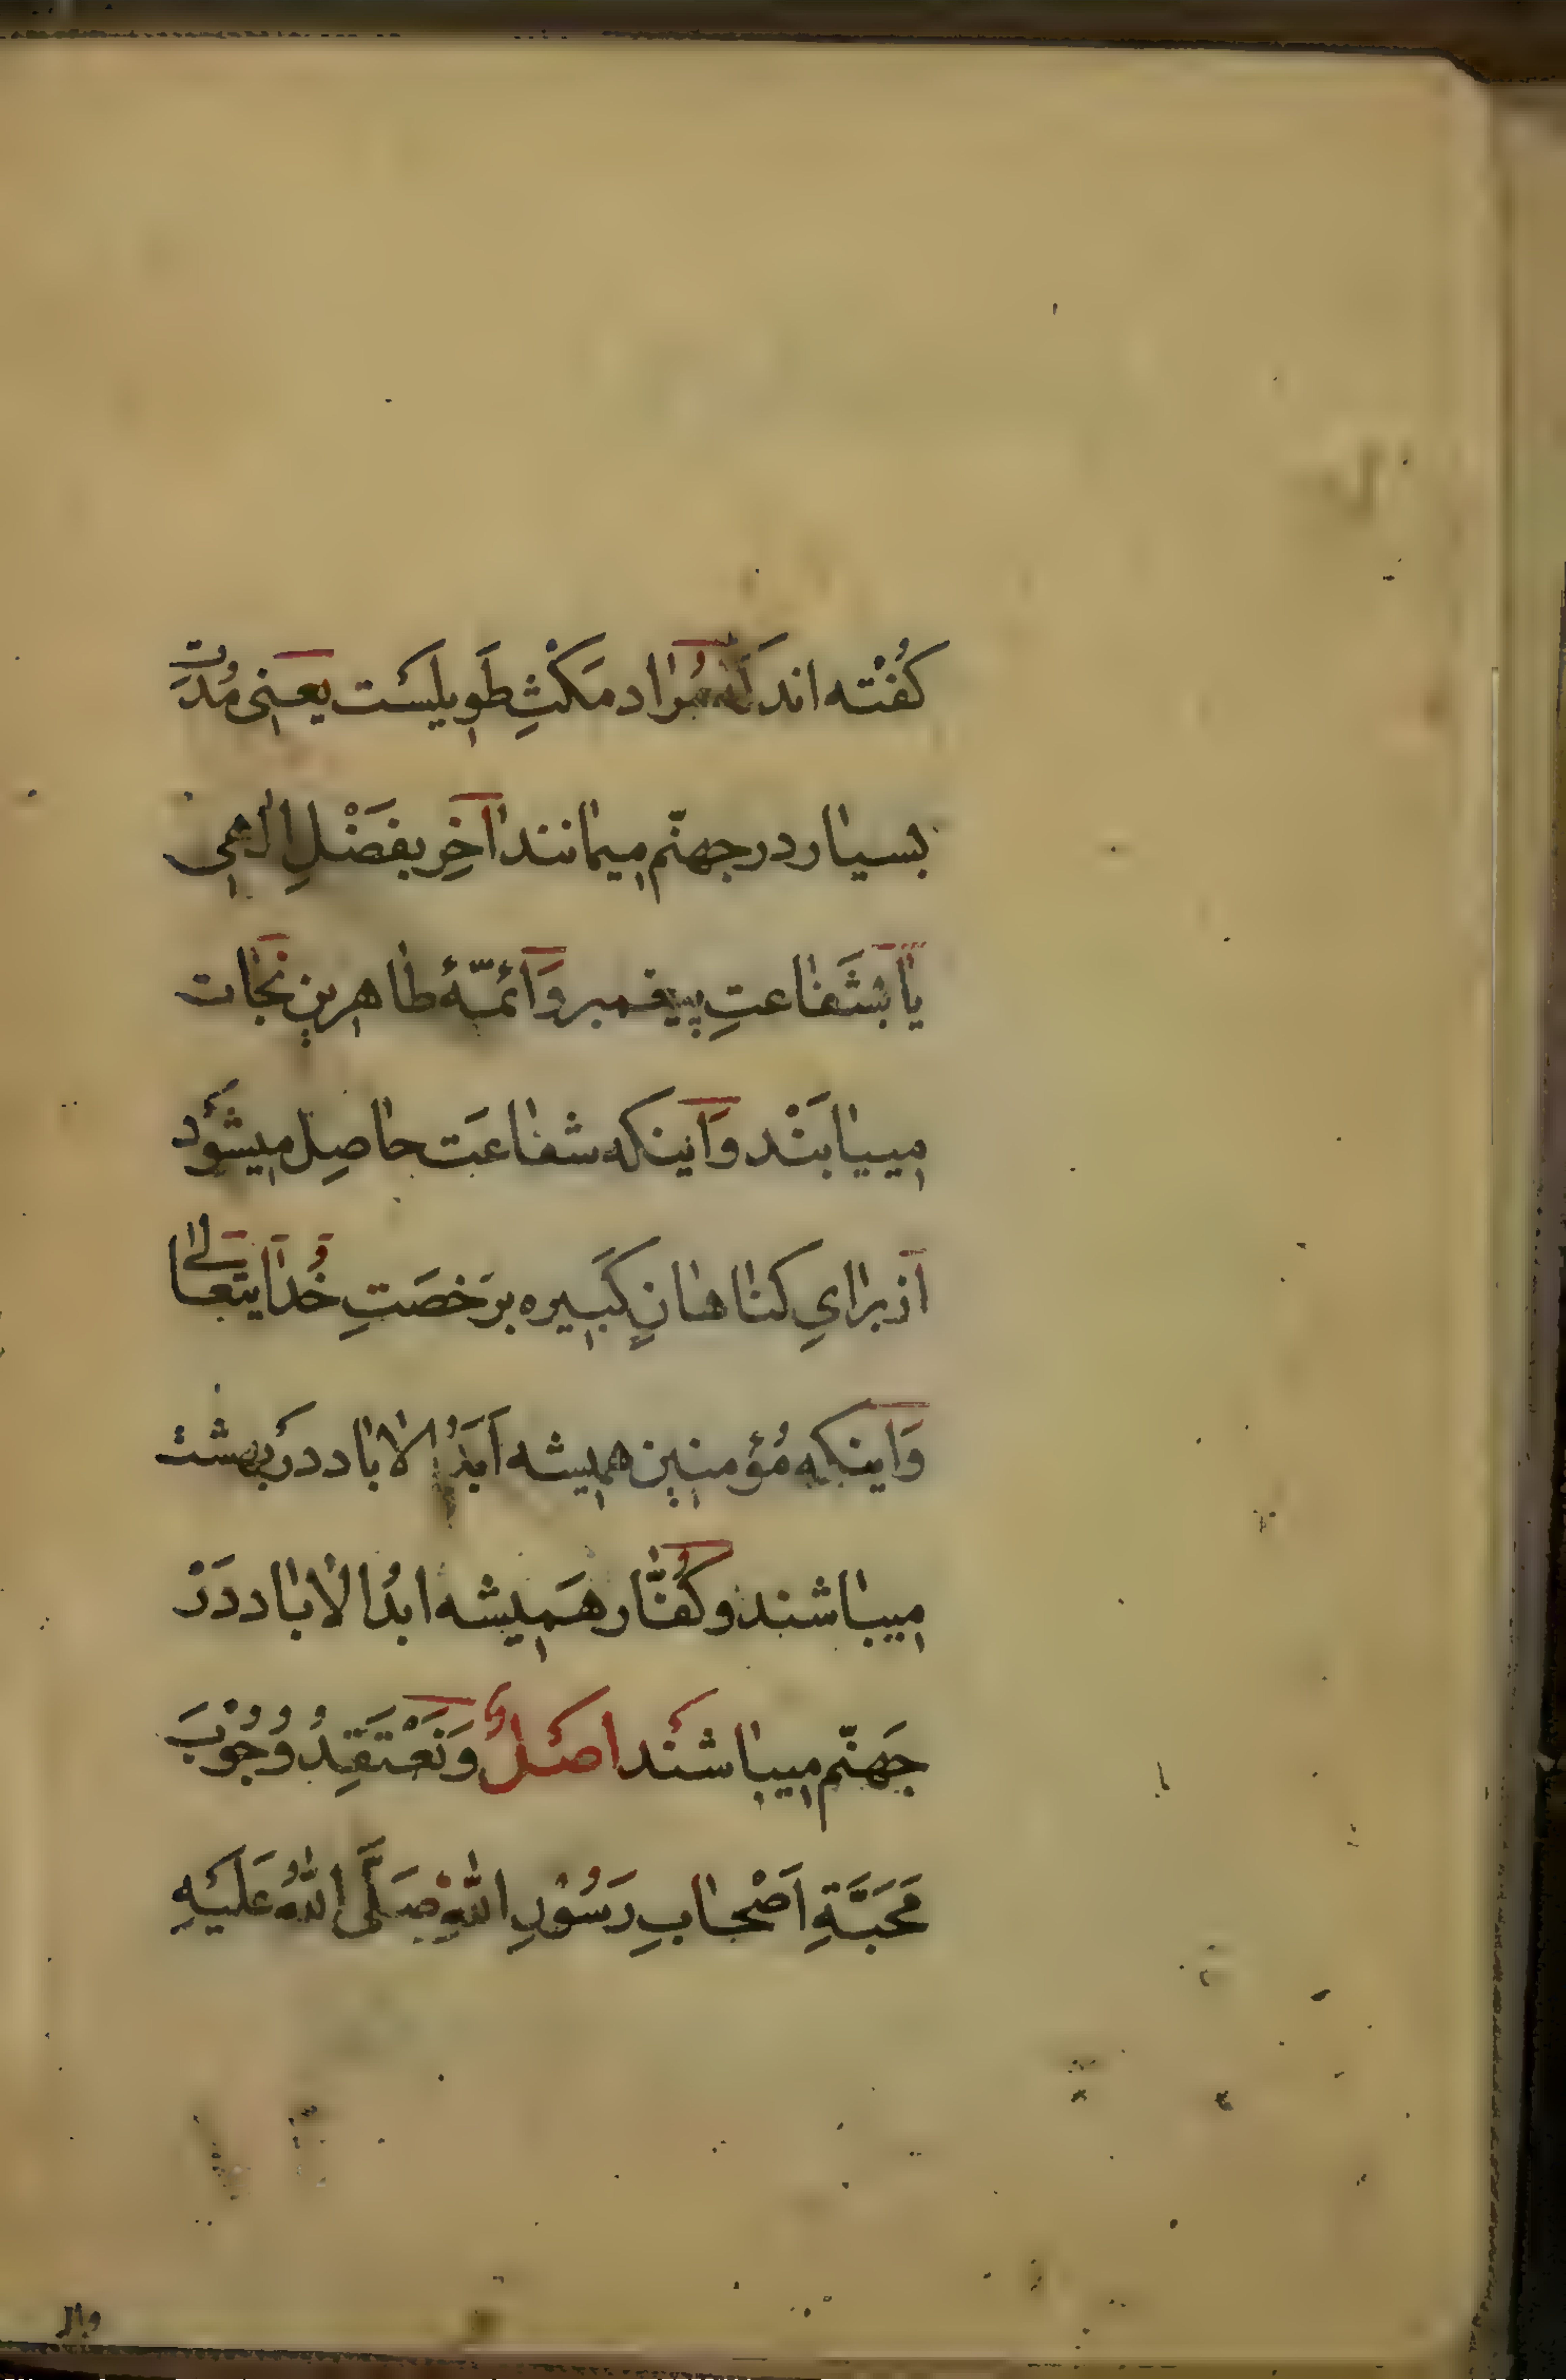 كُفْته اند كه مُراد مَكْثِ طَويلسَت يَعني مُدَّت
بسيار در جهنّم ميمانند آخِر بفَضْلِ الٰهي
يا بشَفاعتِ پيغمبر وَائمّهٔ طاهرين نَجات
مييابَنْد وَاينكه شفاعَت حاصِل ميشَوَد
اَز براىِ كناهانِ كَبيره برَخصَتِ خُدايتَعالىٰ
وَاينكه مُؤمنين هميشه اَبَدُ الاباد دَر بهشت
ميباشند و كُفّار هَميشه ابدُ الاباد دَرْ
جَهنّم ميباشَند اصَلٌ وَنَعْتَقِدُ وُجُوْبَ
مَحَبَّةِ اَصْحابِ رَسُوْلِ اللّٰهِ صَلَّى اللّٰهُ عَلَيْهِ
وال